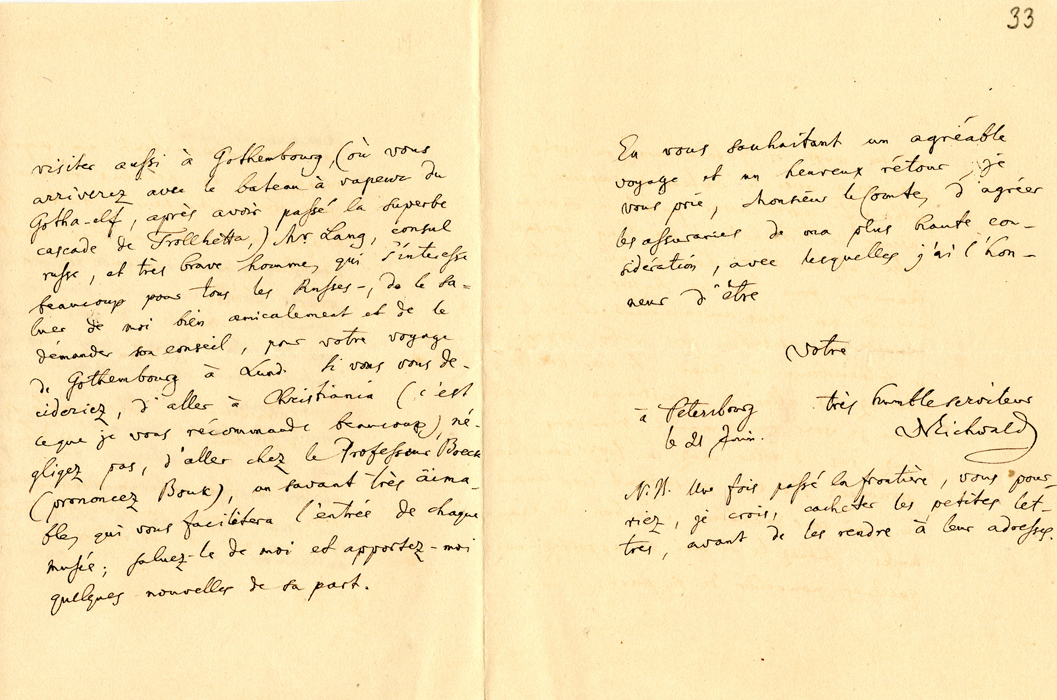 33
visiter aussi à Gothembourg, (où vous
arriverez avec le bateau à vapeur du
Gotha-elf, après avoir passé la superbe
cascade de Trollhetta,) Mr Lang, consul
russe, et très brave homme, qui s'intéresse
beaucoup pour tous les Russes-, de le sa-
luer de moi bien amicalement et de le
démander son conseil, pour votre voyage
de Gothembourg à Lund. Si vous vous dé-
cideriez, d'aller à Christiania (c'est
ce que je vous récommande beaucoup), né-
gligez pas, d'aller chez le Professeur Boeck
(prononcez Bouk), un savant très äima-
ble, qui vous facilitera l'entrée de chaque
musée; saluez-le de moi et apportez-moi
quelques nouvelles de sa part.
En vous souhaitant un agréable
voyage et un heureux rétour, je
vous prie, Monsieur le Comte, d'agréer
les assurances de ma plus haute con-
sidération, avec lesquelles j'ai l'hon-
neur d'être
Votre
très humble serviteur
à Petersbourg
le 21 Juin.
Eichwald
N.N. Une fois passé la frontière, vous pour-
riez, je crois, cachéter les petites let-
tres, avant de les rendre à leur adresse.